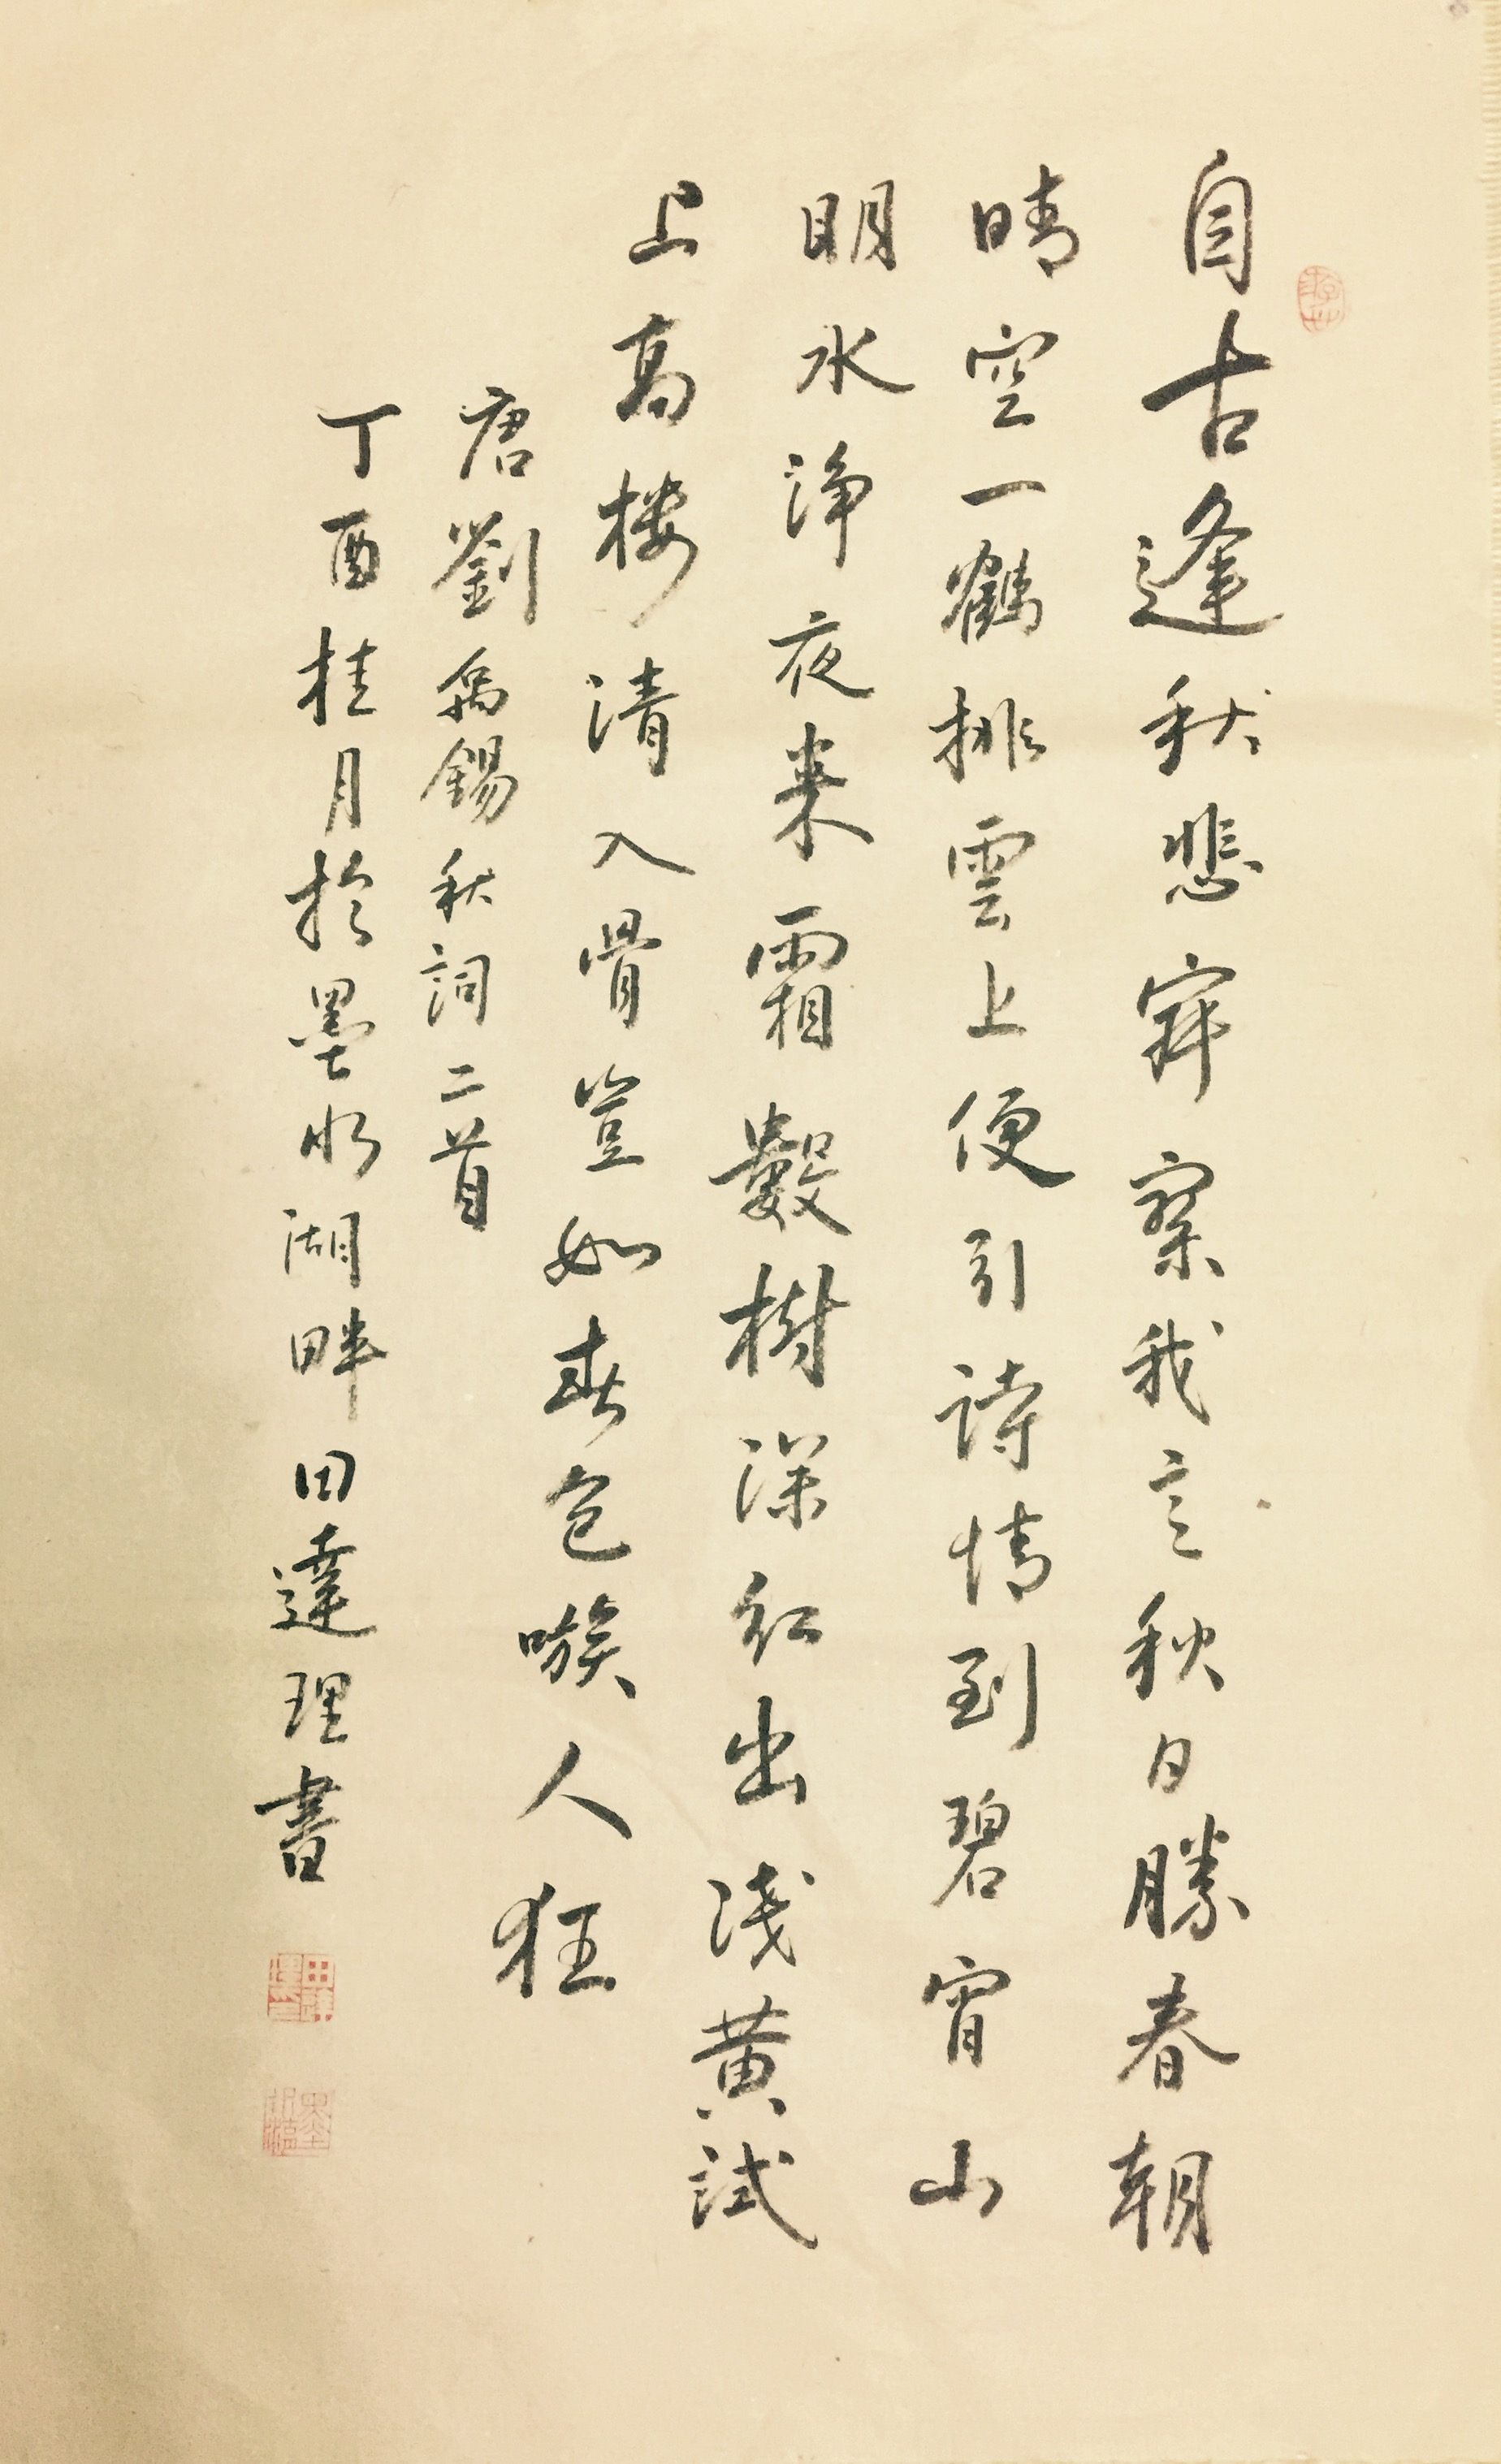 自古逢秋悲寂寥我言秋日勝春朝
晴空一鶴排雲上便引詩情到碧宵山
明水淨夜来霜數樹深紅出淺黄試
上高楼清入骨豈如春色嗾人狂
唐劉禹錫秋詞二首
丁酉桂月於墨水湖畔田達理書